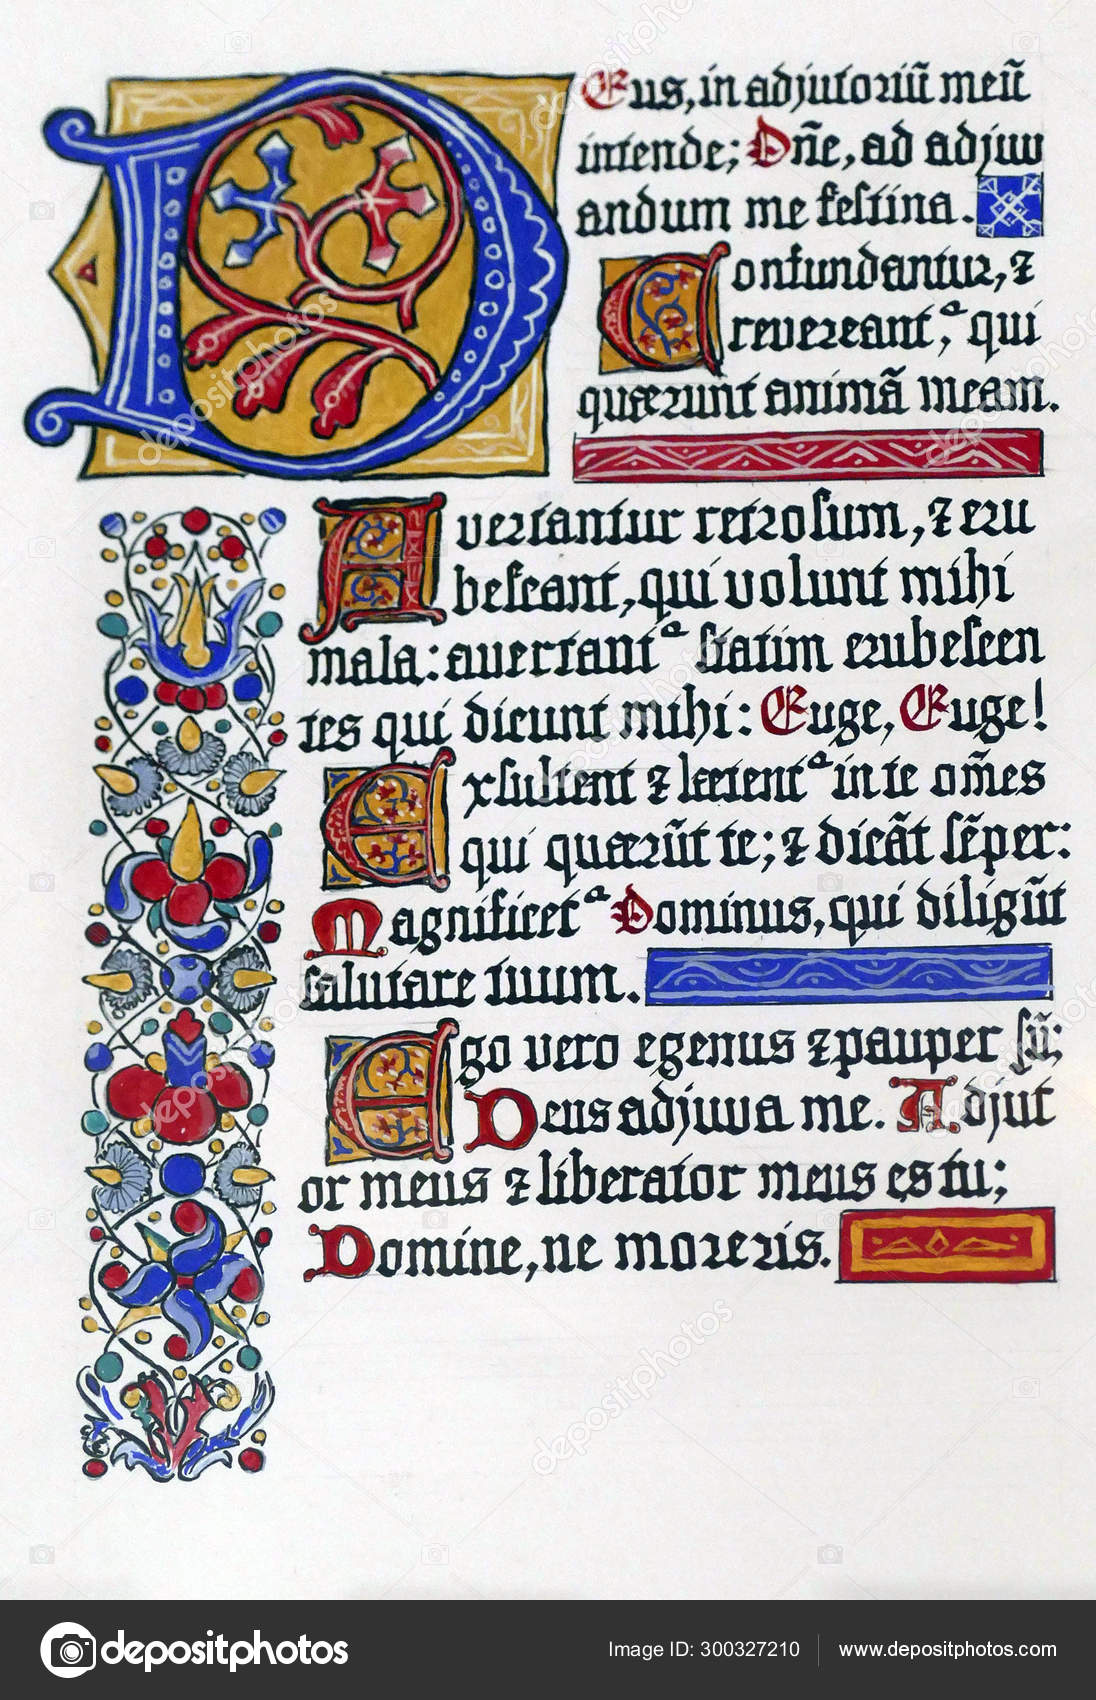 DEus, in adjutoriū meū
intende; Dñe, ad adjuv
andum me festina.
Confundantur, &
revereant^r, qui
quærunt animā meam.
Avertantur retrosum, & eru
bescant, qui volunt mihi
mala: avertant^r statim erubescen
tes qui dicunt mihi: Euge, Euge!
Exsultent & lætent^r in te om̄es
qui quærūt te; & dicāt sēper:
Magnificet^r Dominus, qui diligūt
salutare tuum.
Ego vero egenus & pauper sū;
Deus adjuva me. Adjut
or meus & liberator meus es tu;
Domine, ne moreris.
depositphotos
Image ID: 300327210
www.depositphotos.com